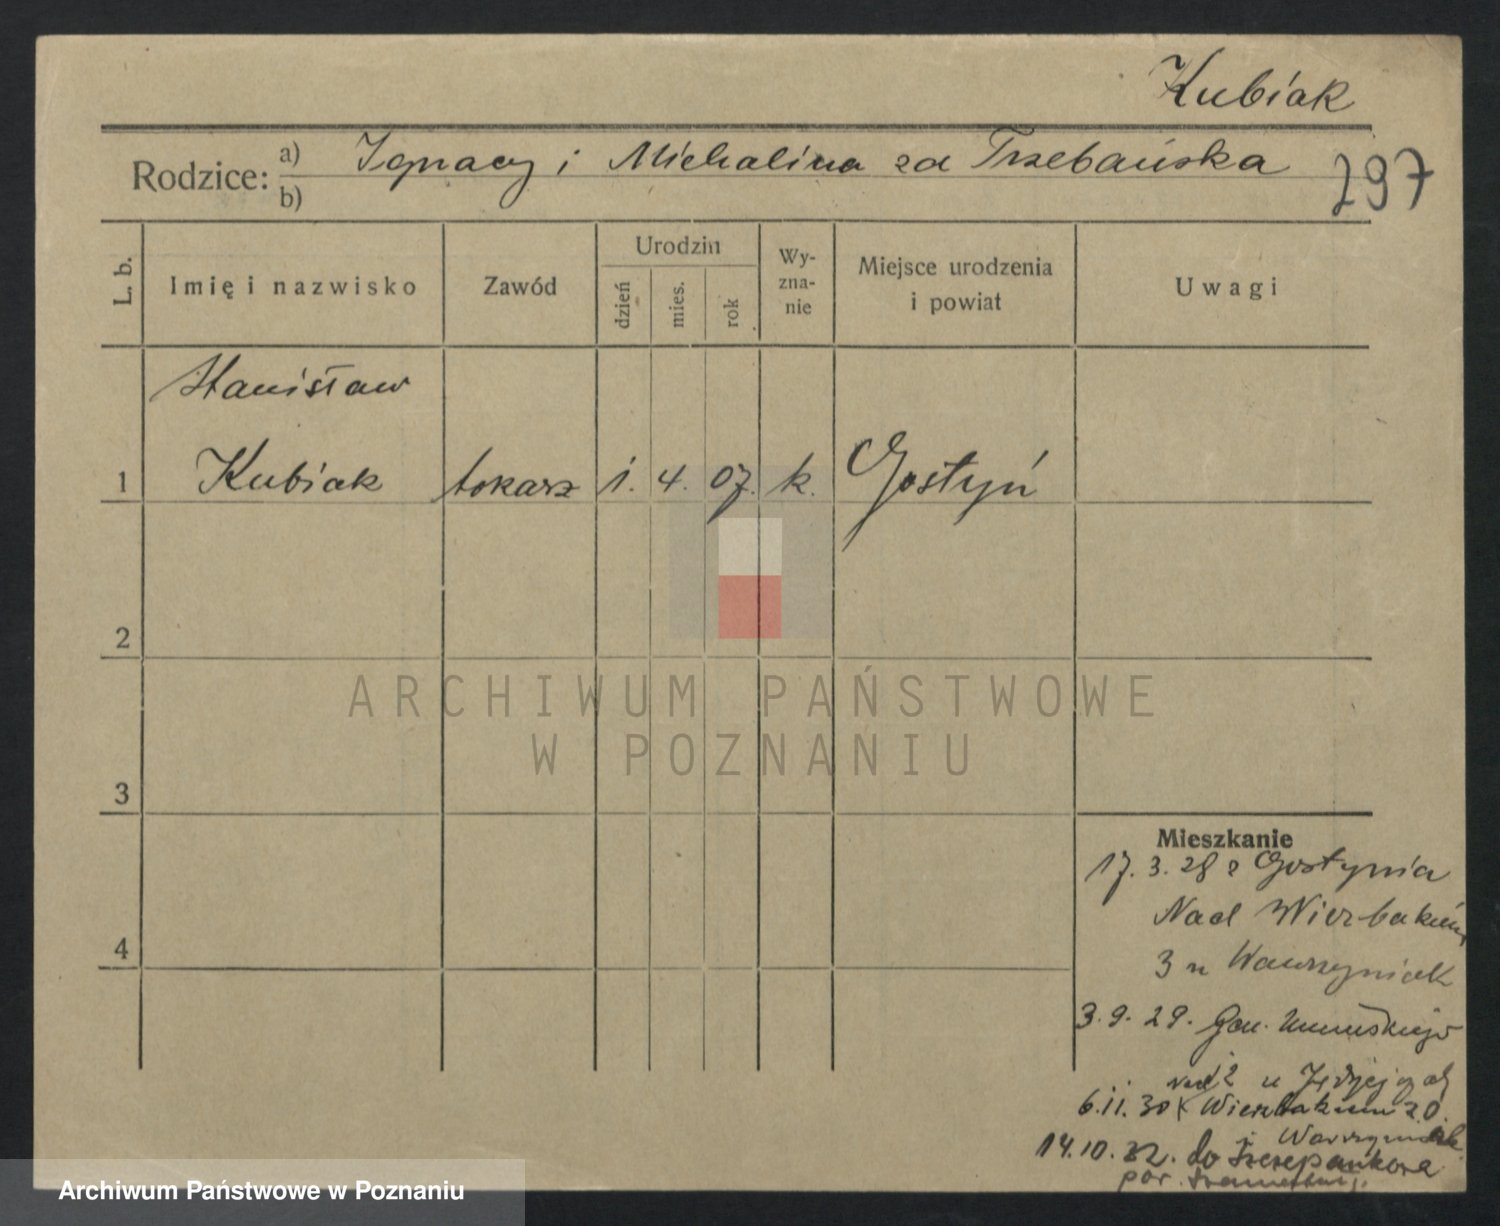 Kubiak
Rodzice: a) Ignacy i Michalina zd Trzebańska
b)
297
L. b.
Imię i nazwisko
Zawód
Urodzin
dzień
mies.
rok
Wy-
zna-
nie
Miejsce urodzenia
i powiat
Uwagi
Stanisław
1 Kubiak tokarz 1. 4. 07. k. Gostyń
2
ARCHIWUM PAŃSTWOWE
W POZNANIU
3
Mieszkanie
17. 3. 28 z Gostynia
Nad Wierzbakiem
4
3 u Wawrzyniak
3. 9. 29. Gen. Umińskiego
12 u
6.11.30 Nad Wierzbakiem 20.
Wawrzyniak
14.10.32. do Szczepankowa
pow.
Archiwum Państwowe w Poznaniu